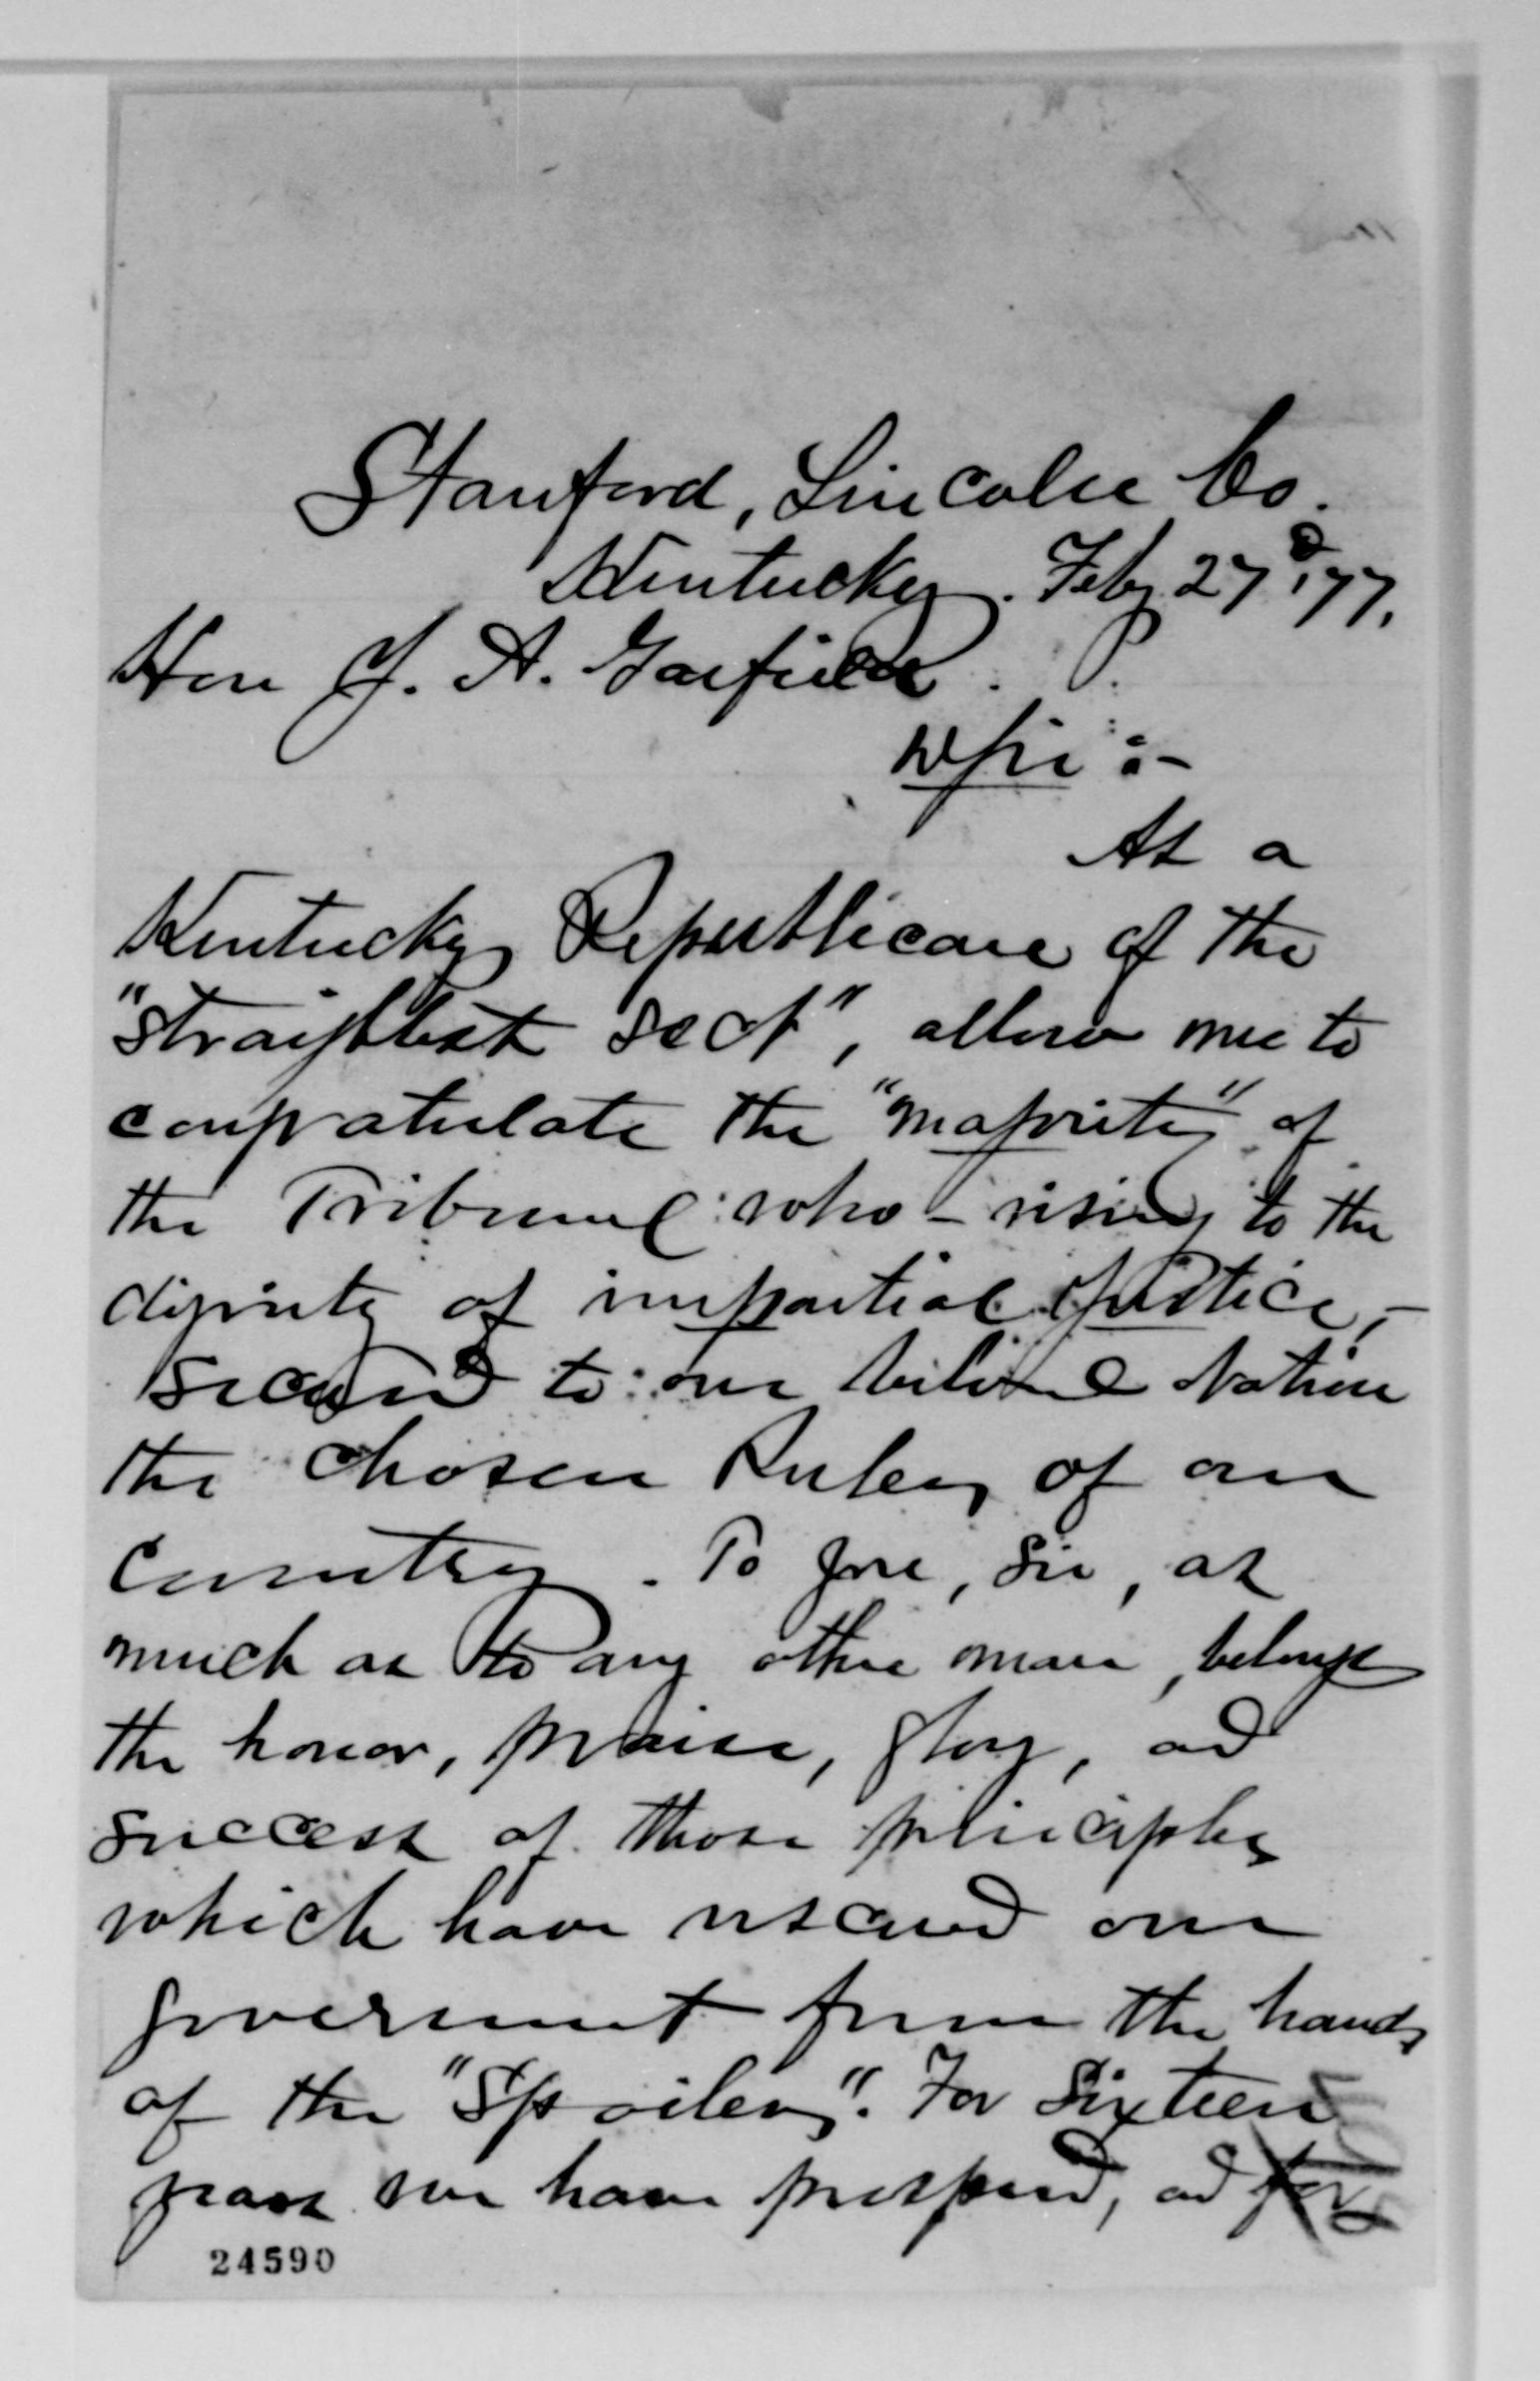 Stanford, Lincoln Co.
Kentucky. Feby 27 '77.
Hon J. A. Garfield.
Sir :-
As a
Kentucky Republican of the
"straightest sect", allow me to
congratulate the "majority" of
the Tribunal who – rising to the
dignity of impartial justice, –
secured to our beloved Nation
the chosen Rulers of our
Country. To you, Sir, as
much as to any other man, belongs
the honor, praise, glory, and
success of those principles
which have rescued our
government from the hands
of the "Spoilers". For Sixteen
years we have prospered, and for
24590